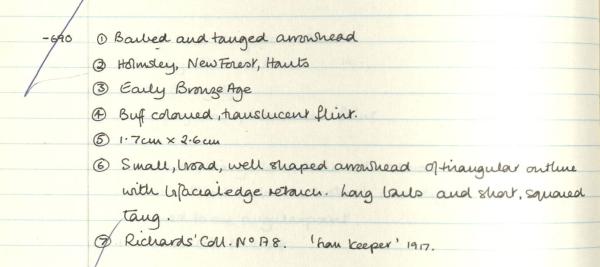 -690 ① Barbed and tanged arrowhead
② Holmsley, New Forest, Hants
③ Early Bronze Age
④ Buff coloured, translucent flint.
⑤ 1.7cm x 2.6cm
⑥ Small, broad, well shaped arrowhead of triangular outline
with bifacial edge retouch. Long barbs and short, squared
tang.
⑦ Richards' Coll. No A8. ' keeper' 1917.